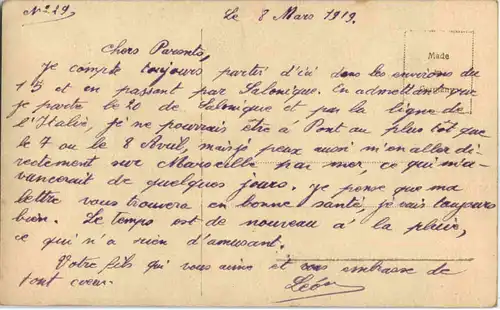 N° 229
Le 8 Mars 1919.
Made
Chers Parents,
Je compte toujours partir d'ici dans les environs du
15 et en passant par Salonique. En admettant que
je parte le 20 de Salonique et par la ligne de
l'Italie, je ne pourrais être à Pont au plus tôt que
le 7 ou le 8 Avril mais je peux aussi m'en aller di-
rectement sur Marseille par mer, ce qui m'a-
vancerait de quelques jours. Je pense que ma
lettre vous trouvera en bonne santé, je vais toujours
bien. Le temps est de nouveau à la pluie,
ce qui n'a rien d'amusant.
Votre fils qui vous aime et vous embrasse de
tout coeur.
Léon